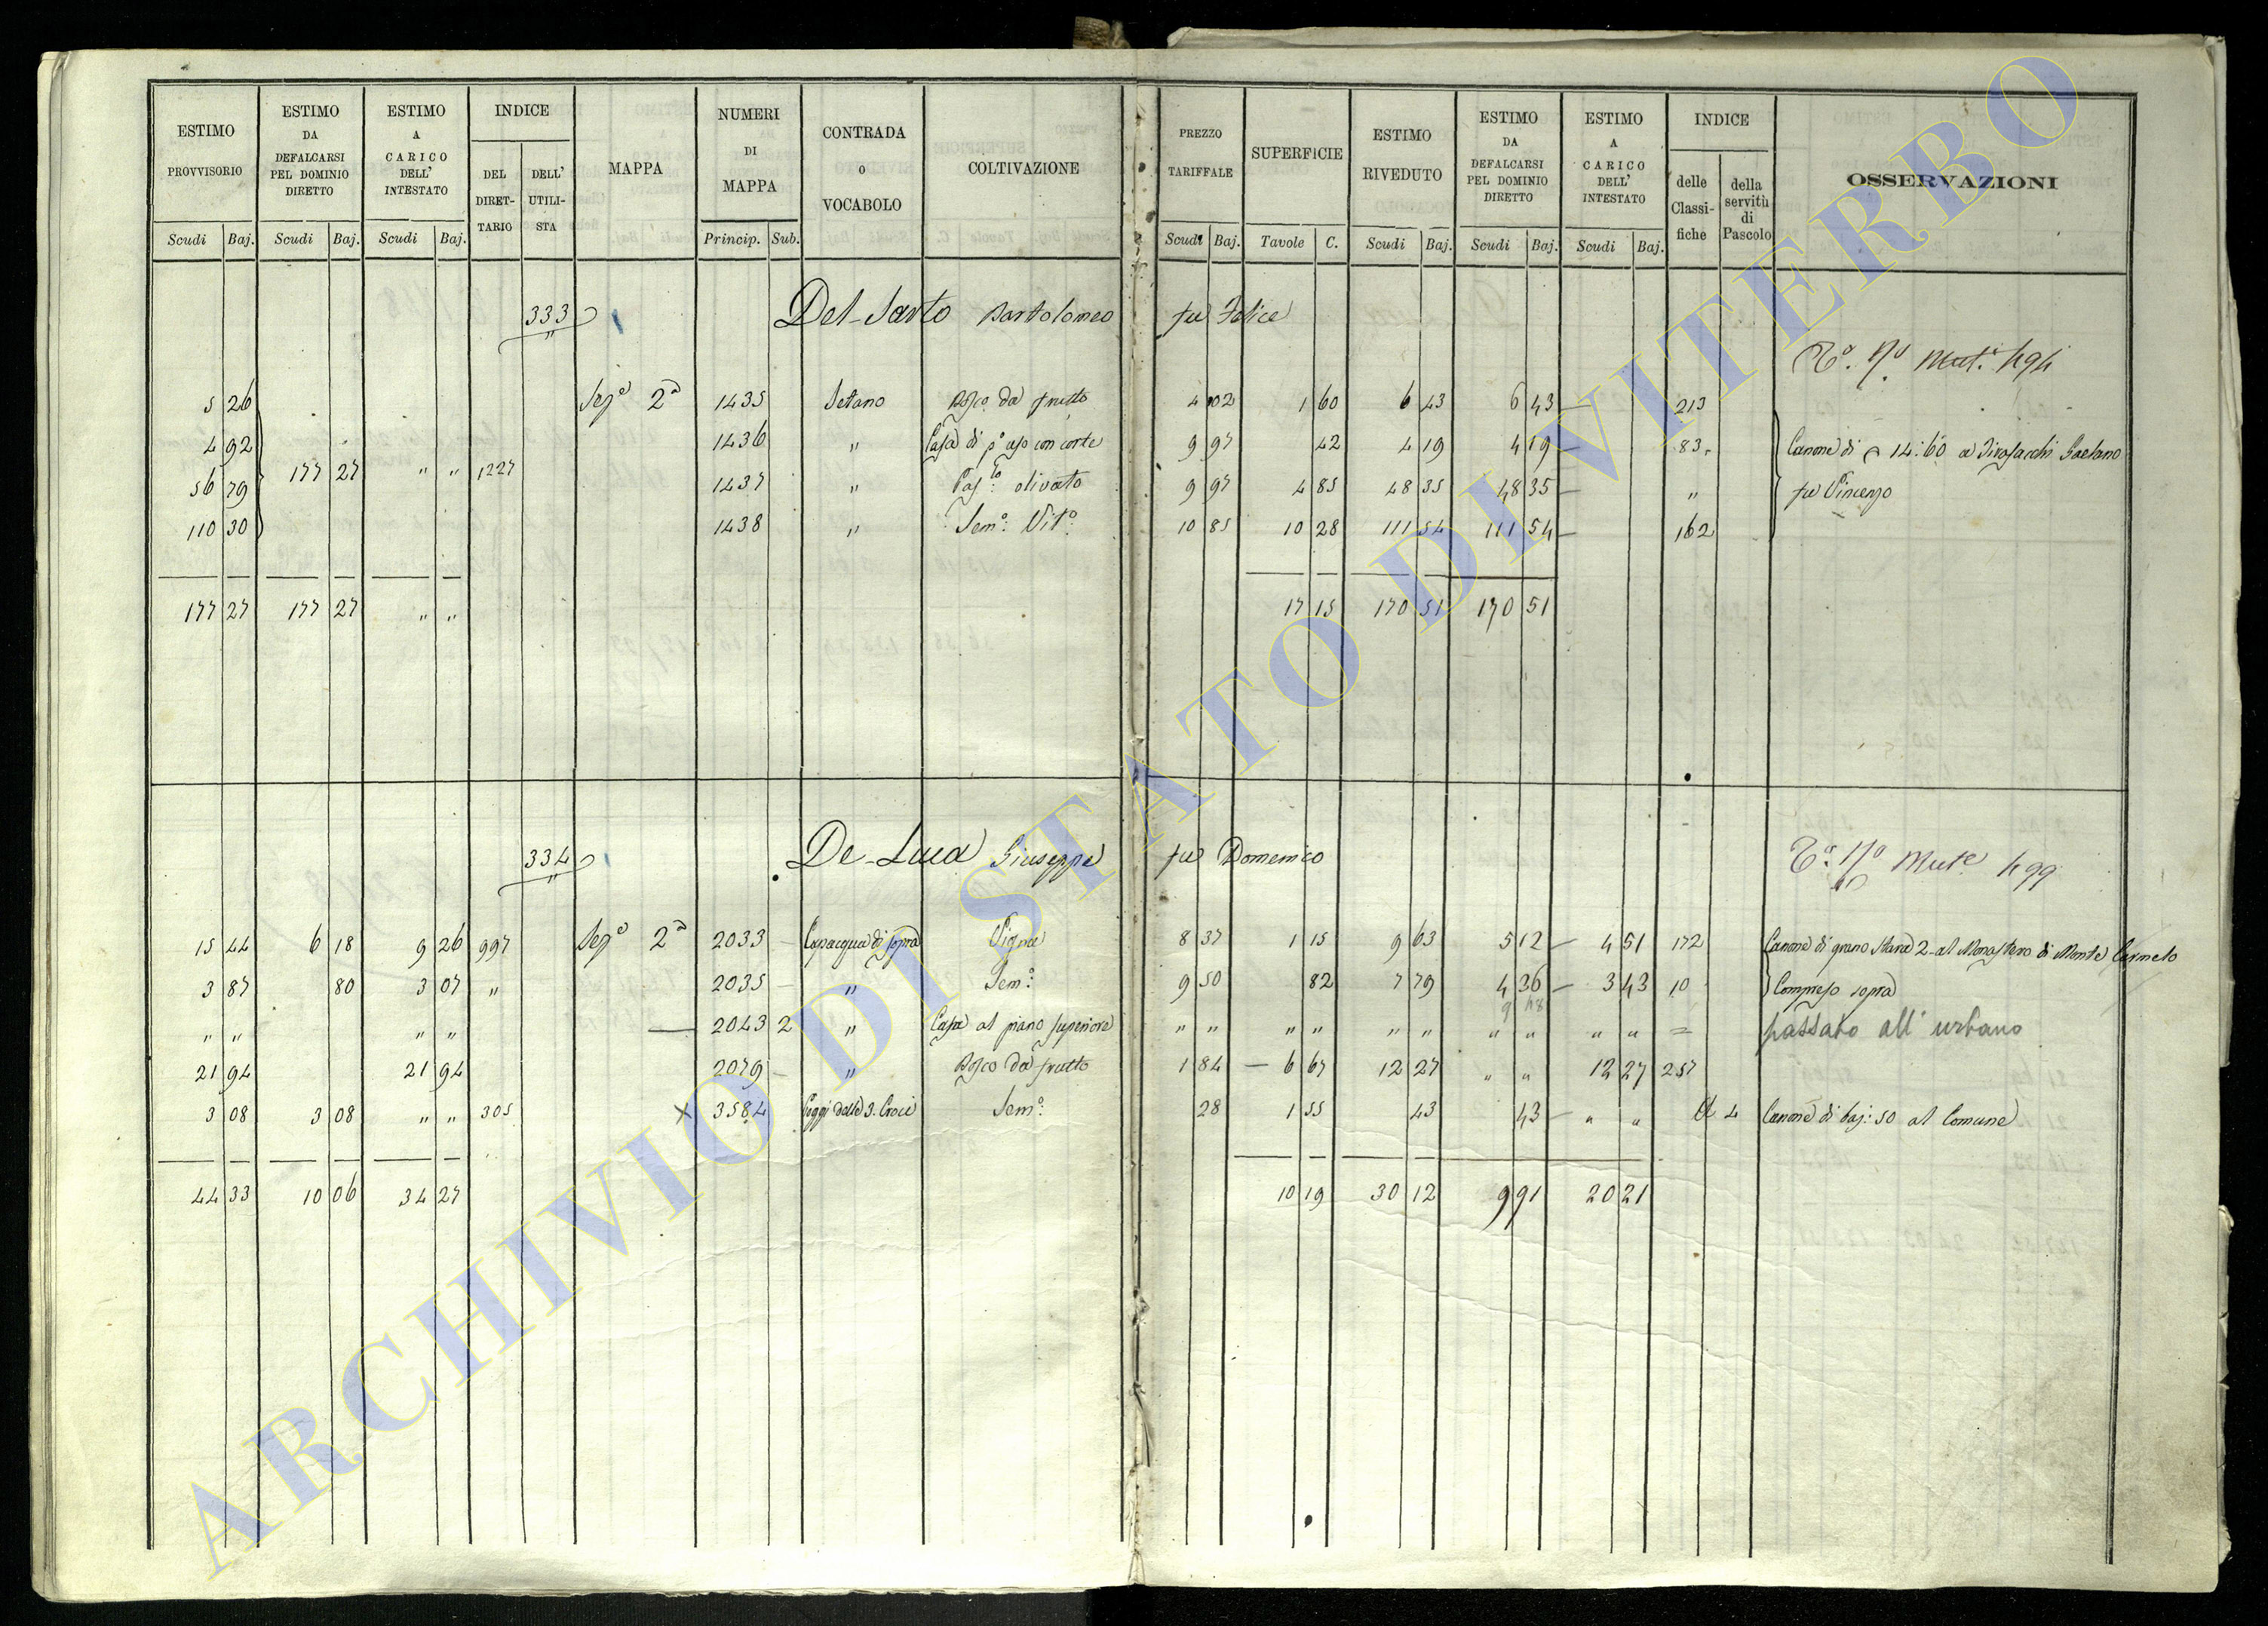 ESTIMO PROVVISORIO | ESTIMO DA DEFALCARSI PEL DOMINIO DIRETTO | ESTIMO A CARICO DELL' INTESTATO | INDICE | MAPPA | NUMERI DI MAPPA | CONTRADA o VOCABOLO | COLTIVAZIONE | PREZZO TARIFFALE | SUPERFICIE | ESTIMO RIVEDUTO | ESTIMO DA DEFALCARSI PEL DOMINIO DIRETTO | ESTIMO A CARICO DELL' INTESTATO | INDICE | OSSERVAZIONI
DEL DIRET-TARIO | DELL' UTILI-STA | delle Classi-fiche | della servitù di Pascolo
Scudi | Baj. | Scudi | Baj. | Scudi | Baj. | Princip. | Sub. | Scudi | Baj. | Tavole | C. | Scudi | Baj. | Scudi | Baj. | Scudi | Baj.
333 Del-Sarto Bartolomeo fu Felice
Tᵒ. Nᵒ Mut. 494
5 26 | Sezᵉ 2ᵃ | 1435 | Setano | Bosco da frutto | 4 02 | 1 60 | 6 43 | 6 43 | 213
4 92 | 1436 | " | Casa di pᵒ uso con corte | 9 97 | 42 | 4 19 | 4 19 | 83 | Canone di 14:60 a Gaetano
56 79 | 177 27 | " " | 1227 | 1437 | " | Pasᵗᵒ: olivato | 9 97 | 4 85 | 48 35 | 48 35 | " | fu Vincenzo
110 30 | 1438 | " | Semᵒ: Vitᵒ: | 10 85 | 10 28 | 111 54 | 111 54 | 162
177 27 | 177 27 | " " | 17 15 | 170 51 | 170 51
334 De-Luca Giuseppe fu Domenico
Tᵒ: Nᵒ Mutᵉ 499
15 44 | 6 18 | 9 26 | 997 | Sezᵉ 2ᵃ | 2033 | Capacqua di sopra | Vigna | 8 37 | 1 15 | 9 63 | 5 12 | 4 51 | 172 | Canone di grano Stara 2 al Monastero di Monte Carmelo
3 87 | 80 | 3 07 | " | 2035 | " | Semᵒ: | 9 50 | 82 | 7 79 | 4 36 | 3 43 | 10 | Compreso sopra
9 48
" " | " " | 2043 2 | " | Casa al piano superiore | " " | " " | " " | " " | " " | = | passato all' urbano
21 94 | 21 94 | 2079 | " | Bosco da frutto | 1 84 | 6 67 | 12 27 | " " | 12 27 | 257
3 08 | 3 08 | " " | 305 | X 3584 | Poggi della S. Croce | Semᵒ: | 28 | 1 55 | 43 | 43 | " " | 4 | Canone di baj: 50 al Comune
44 33 | 10 06 | 34 27 | 10 19 | 30 12 | 9 91 | 20 21
ARCHIVIO DI STATO DI VITERBO